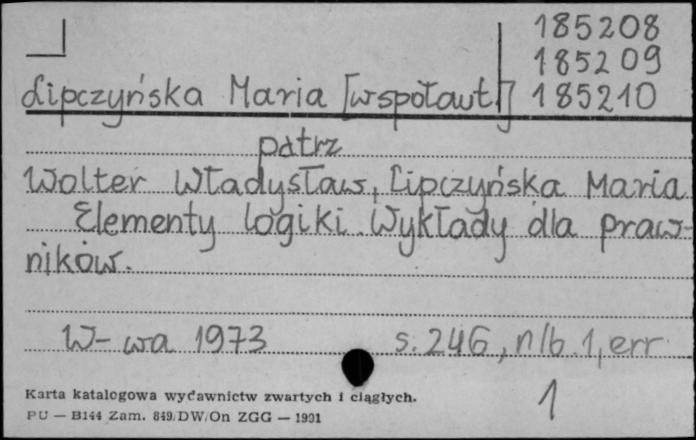 185208
185209
Lipczyńska Maria [współaut.] 185210
patrz
Wolter Władysław, Lipczyńska Maria
Elementy logiki. Wykłady dla praw-
ników.
W-wa 1973 s. 246, nlb. 1, err.
1
Karta katalogowa wydawnictw zwartych i ciągłych.
PU — B144 Zam. 849/DW/On ZGG — 1991